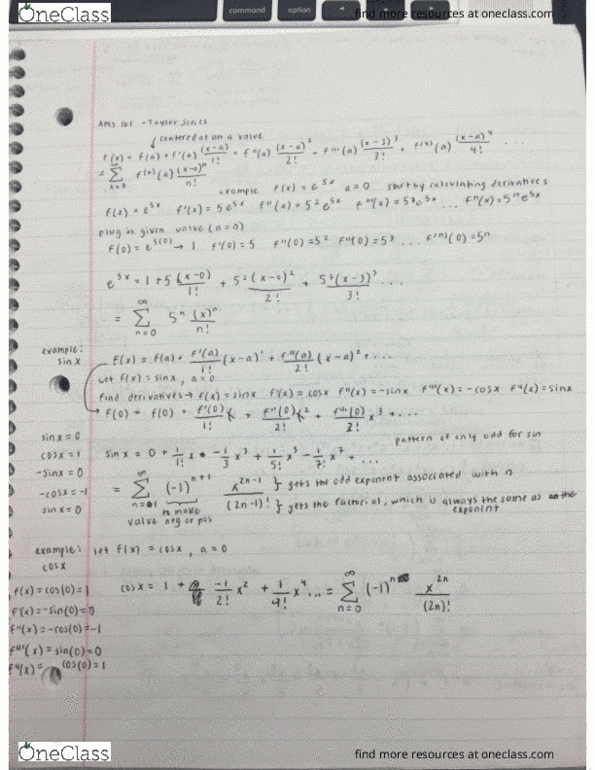 OneClass
find more resources at oneclass.com
command option
AMS 161 - Taylor Series
centered at an a value
f(x) = f(a) + f'(a) (x-a)/1! + f''(a) (x-a)²/2! + f'''(a) (x-3)³/3! + f⁽⁴⁾(a) (x-a)⁴/4! ...
= Σ n=0 f⁽ⁿ⁾(a) (x-a)ⁿ/n!
example f(x) = e^5x a=0 start by calculating derivatives
f(x) = e^5x f'(x) = 5e^5x f''(x) = 5²e^5x f'''(x) = 5³e^5x ... fⁿ(x) = 5ⁿe^5x
plug in given value (a=0)
f(0) = e^5(0) → 1 f'(0) = 5 f''(0) = 5² f'''(0) = 5³ ... f⁽ⁿ⁾(0) = 5ⁿ
e^5x = 1 + 5 (x-0)/1! + 5² (x-0)²/2! + 5³ (x-3)³/3! ...
= Σ n=0 ∞ 5ⁿ (x)ⁿ/n!
example:
sin x
f(x) = f(a) + f'(a)/1! (x-a)' + f''(a)/2! (x-a)² + ...
Let f(x) = sin x, a=0
find derivatives → f(x) = sinx f'(x) = cosx f''(x) = -sinx f'''(x) = -cosx f⁴(x) = sinx
f(0) = f(0) + f'(0)/1! x + f''(0)/2! x² + f'''(0)/3! x³ + ...
sin x = 0
cos x = 1
-sin x = 0
-cos x = -1
sin x = 0
pattern of only odd for sin
sin x = 0 + 1/1! x + -1/3 x³ + 1/5! x⁵ - 1/7! x⁷ + ...
= Σ n=1 ∞ (-1)ⁿ⁺¹ x²ⁿ⁻¹/(2n-1)!
} gets the odd exponent associated with n
} gets the factorial, which is always the same as the exponent
to make
value neg or pos
example: let f(x) = cosx, a=0
cosx
f(x) = cos(0) = 1
f'(x) = -sin(0) = 0
f''(x) = -cos(0) = -1
f'''(x) = sin(0) = 0
f⁴(x) = cos(0) = 1
cos x = 1 + -1/2! x² + 1/4! x⁴ ... = Σ n=0 ∞ (-1)ⁿ x²ⁿ/(2n)!
OneClass
find more resources at oneclass.com